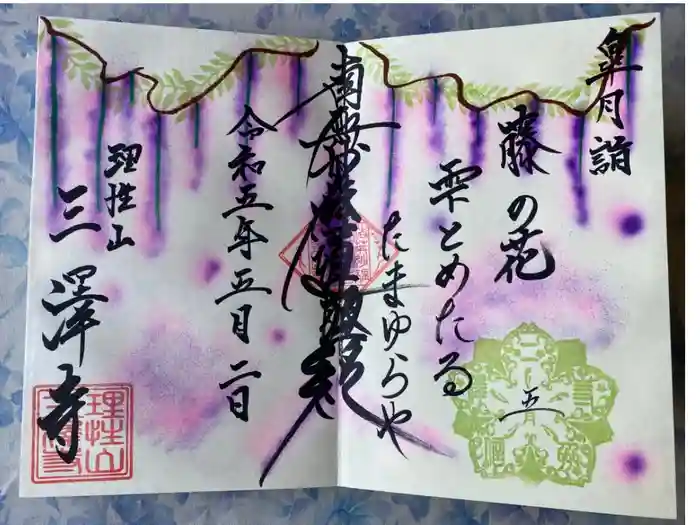 皐月詣
藤の花
雫とめたる
たまゆらや
南無妙法蓮華経
令和五年五月二日
理性山
三澤寺
五月
理性山